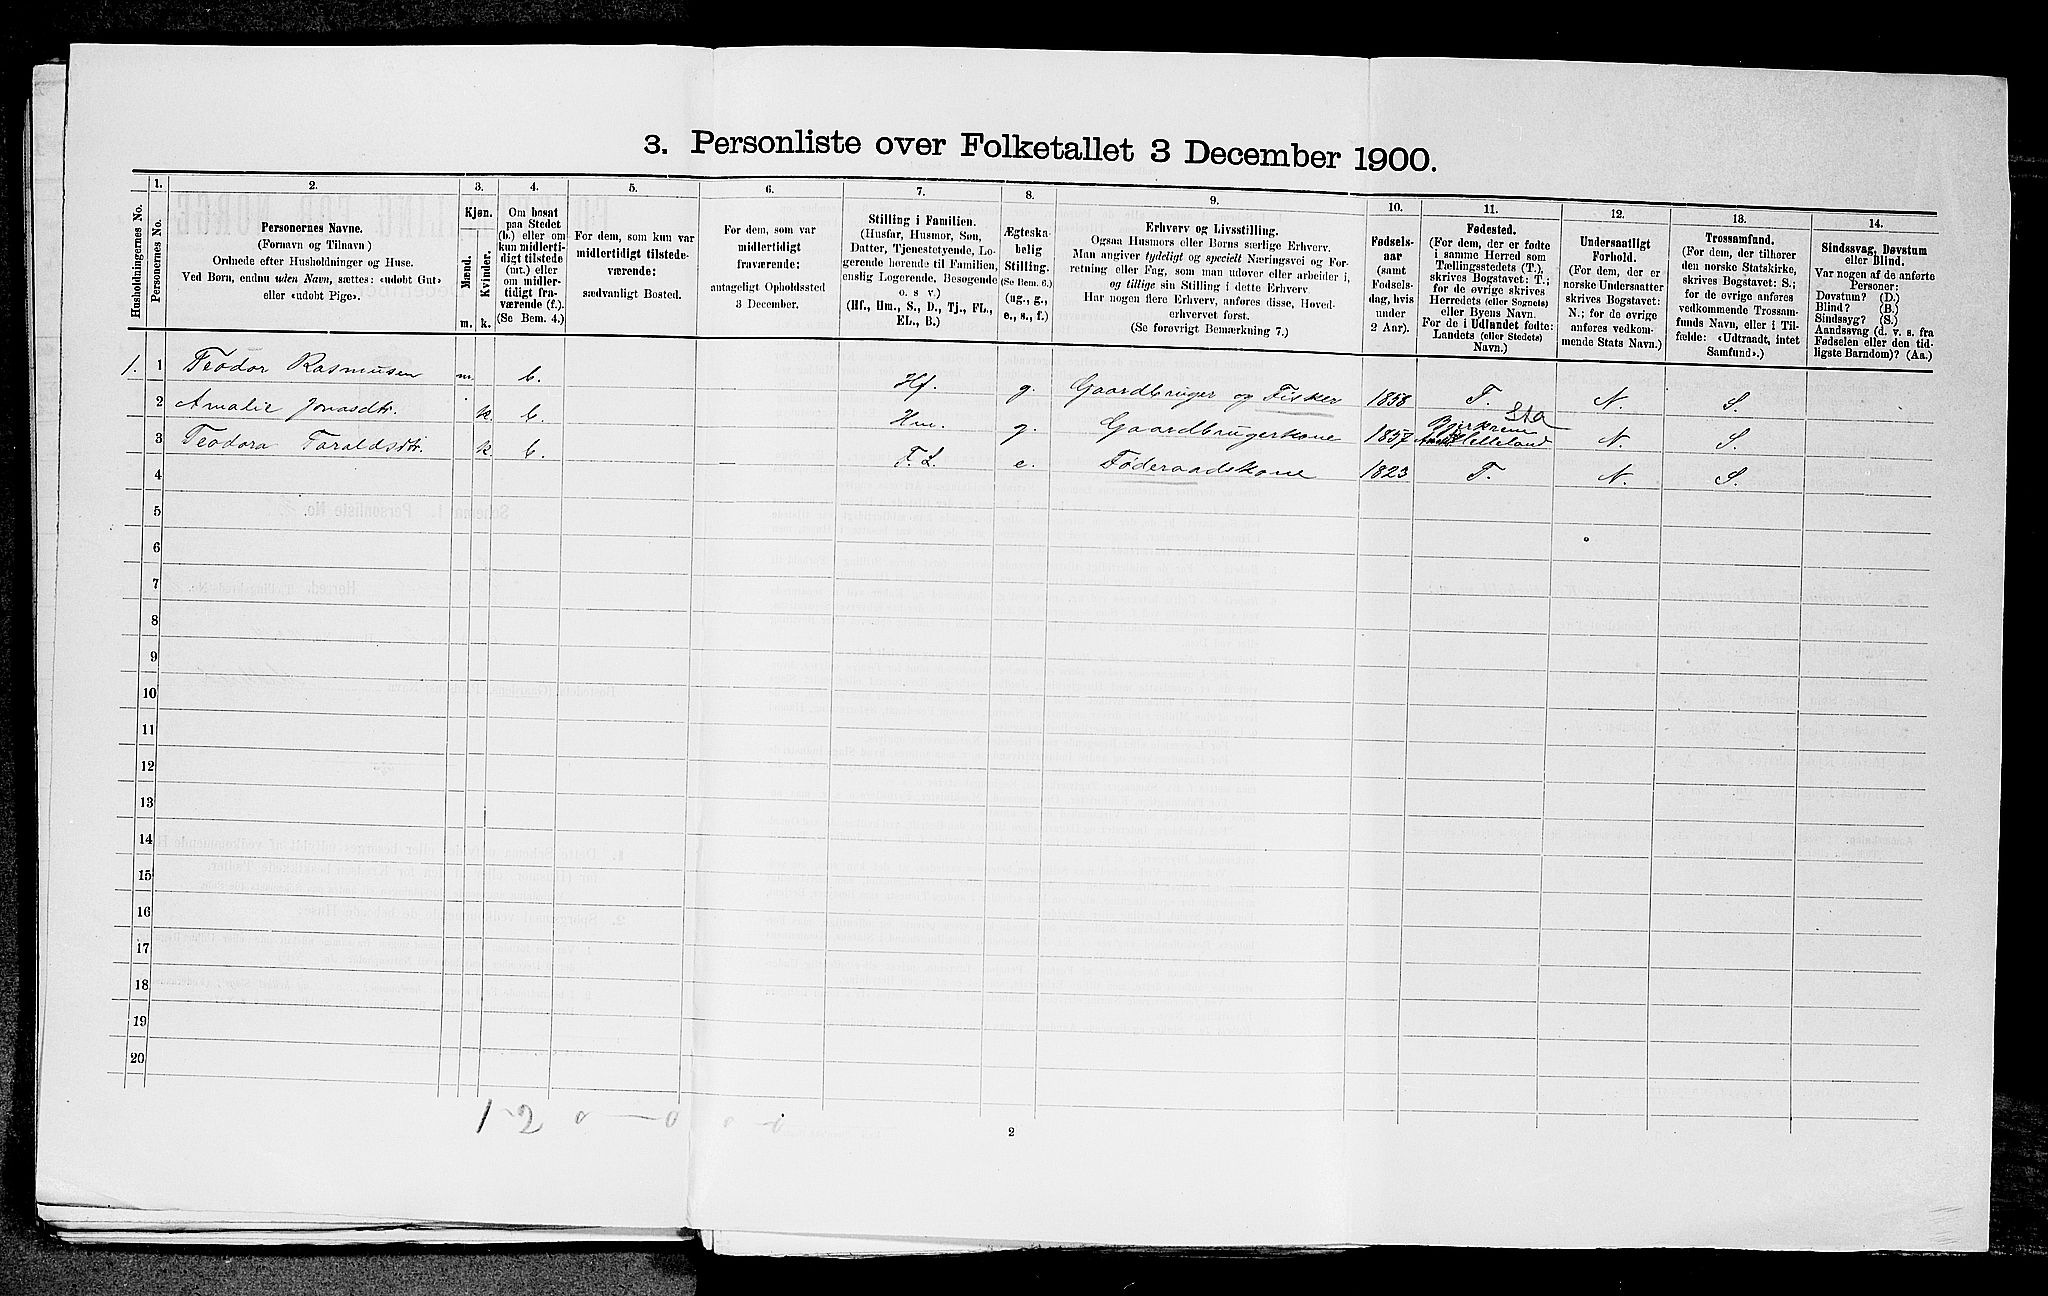 3. Personliste over Folketallet 3 December 1900.
Husholdningernes No.
1.
Personernes No.
2.
Personernes Navne.
(Fornavn og Tilnavn)
Ordnede efter Husholdninger og Huse.
Ved Børn, endnu uden Navn, sættes: «udøbt Gut»
eller «udøbt Pige».
3.
Kjøn.
Mænd.
Kvinder.
m.
k.
4.
Om bosat
paa Stedet
(b.) eller om
kun midlerti-
digt tilstede
(mt.) eller
om midler-
tidigt fra-
værende (f.).
(Se Bem. 4.)
5.
For dem, som kun var
midlertidigt tilstede-
værende:
sædvanligt Bosted.
6.
For dem, som var
midlertidigt
fraværende:
antageligt Opholdssted
3 December.
7.
Stilling i Familien.
(Husfar, Husmor, Søn,
Datter, Tjenestetyende, Lo-
gerende hørende til Familien,
enslig Logerende, Besøgende
o. s. v.)
(Hf., Hm., S., D., Tj., FL.,
EL., B.)
8.
Ægteska-
belig
Stilling.
(Se Bem. 6.)
(ug., g.,
e., s., f.)
9.
Erhverv og Livsstilling.
Ogsaa Husmors eller Børns særlige Erhverv.
Man angiver tydeligt og specielt Næringsvei og For-
retning eller Fag, som man udøver eller arbeider i,
og tillige sin Stilling i dette Erhverv.
Har nogen flere Erhverv, anføres disse, Hoved-
erhvervet først.
(Se forøvrigt Bemærkning 7.)
10.
Fødsels-
aar
(samt
Fødsels-
dag, hvis
under
2 Aar).
11.
Fødested.
(For dem, der er fødte
i samme Herred som
Tællingsstedets (T.),
skrives Bogstavet: T.;
for de øvrige skrives
Herredets (eller Sognets)
eller Byens Navn.
For de i Udlandet fødte:
Landets (eller Stedets)
Navn.)
12.
Undersaatligt
Forhold.
(For dem, der er
norske Undersaatter
skrives Bogstavet:
N.; for de øvrige
anføres vedkom-
mende Stats Navn.)
13.
Trossamfund.
(For dem, der tilhører
den norske Statskirke,
skrives Bogstavet: S.;
for de øvrige anføres
vedkommende Trossam-
funds Navn, eller i Til-
fælde: «Udtraadt, intet
Samfund».)
14.
Sindssvag, Døvstum
eller Blind.
Var nogen af de anførte
Personer:
Døvstum? (D.)
Blind? (B.)
Sindssyg? (S.)
Aandssvag (d. v. s. fra
Fødselen eller den tid-
ligste Barndom)? (Aa.)
1. 1 Teodor Rasmusen m. b. Hf. g. Gaardbruger og Fisker 1858 T. N. S.
2 Amalie Jonasdtr. k. b. Hm. g. Gaardbrugerkone 1857 Bjerkrem Helleland Sta N. S.
3 Teodora Taraldsdtr. k. b. F.L. e. Føderaadskone 1823 T. N. S.
4
5
6
7
8
9
10
11
12
13
14
15
16
17
18
19
20
1-2 0 - 0 0 - 0
2